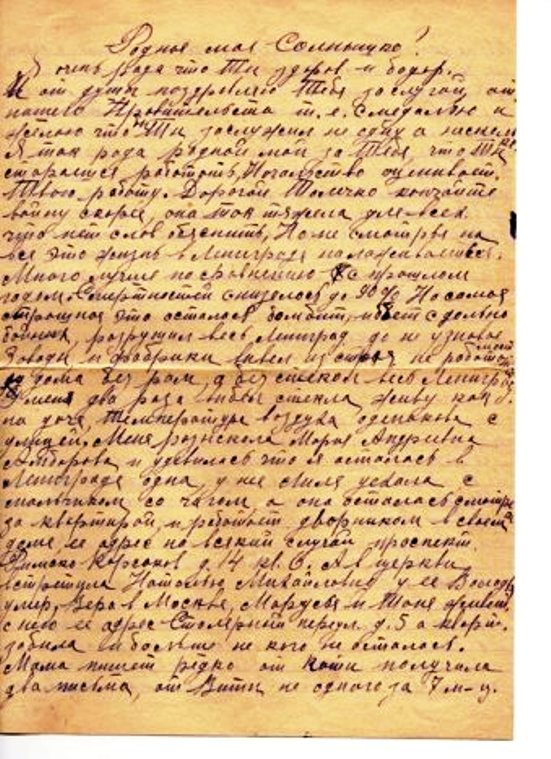 Родное мое Солнышко!
Я очень рада что Ты здоров и бодр.
И от души поздравляю Тебя заслугой от
нашего Правительства т.е. с медалью и
желаю что Ты заслужил не одну а несколь
Я так рада родной мой за Тебя, что Ты
старался работать, Начальство оценивает
Твою работу. Дорогой Толечко кончайте
войну скорее, она так тяжела для всех
что нет слов объяснить, Но не смотря на
все это жизнь в Ленинграде налаживается.
Много лучше по сравнению с прошлом
годем. Смертностей снизелось до 90% Но самое
страшное это осталось бомбит, и бьет с дально
бойных, разрушил весь Ленинград до не узнавае
мости
Заводы и фабрики вывел из строя не работают
дома без рам, а без стекол весь Ленинград
У меня два раза выбиты стекла живу как
на даче, температура воздуха одинакова с
улицей. Меня розыскала Марья Андреевна
Амбарова и удивилась что я осталась в
Ленинграде одна, у нее Лиля уехала с
мальчиком со чагом, а она осталась смотреть
за квартирой, и работает дворником в своем
доме, ее адрес на всякий случай проспект
Римско Корсаков д. 14 кв. 6. А в церкви
встретила Наталью Михайловну у ее Володя
умер, Вера в Москве, Маруся и Таня живет
с нею ее адрес Столярный переул. д. 5 а кварт.
забыла и больше не кого не осталось.
Мама пишет редко от Кати получила
два письма, от Вити не одного за 7 м-ц.